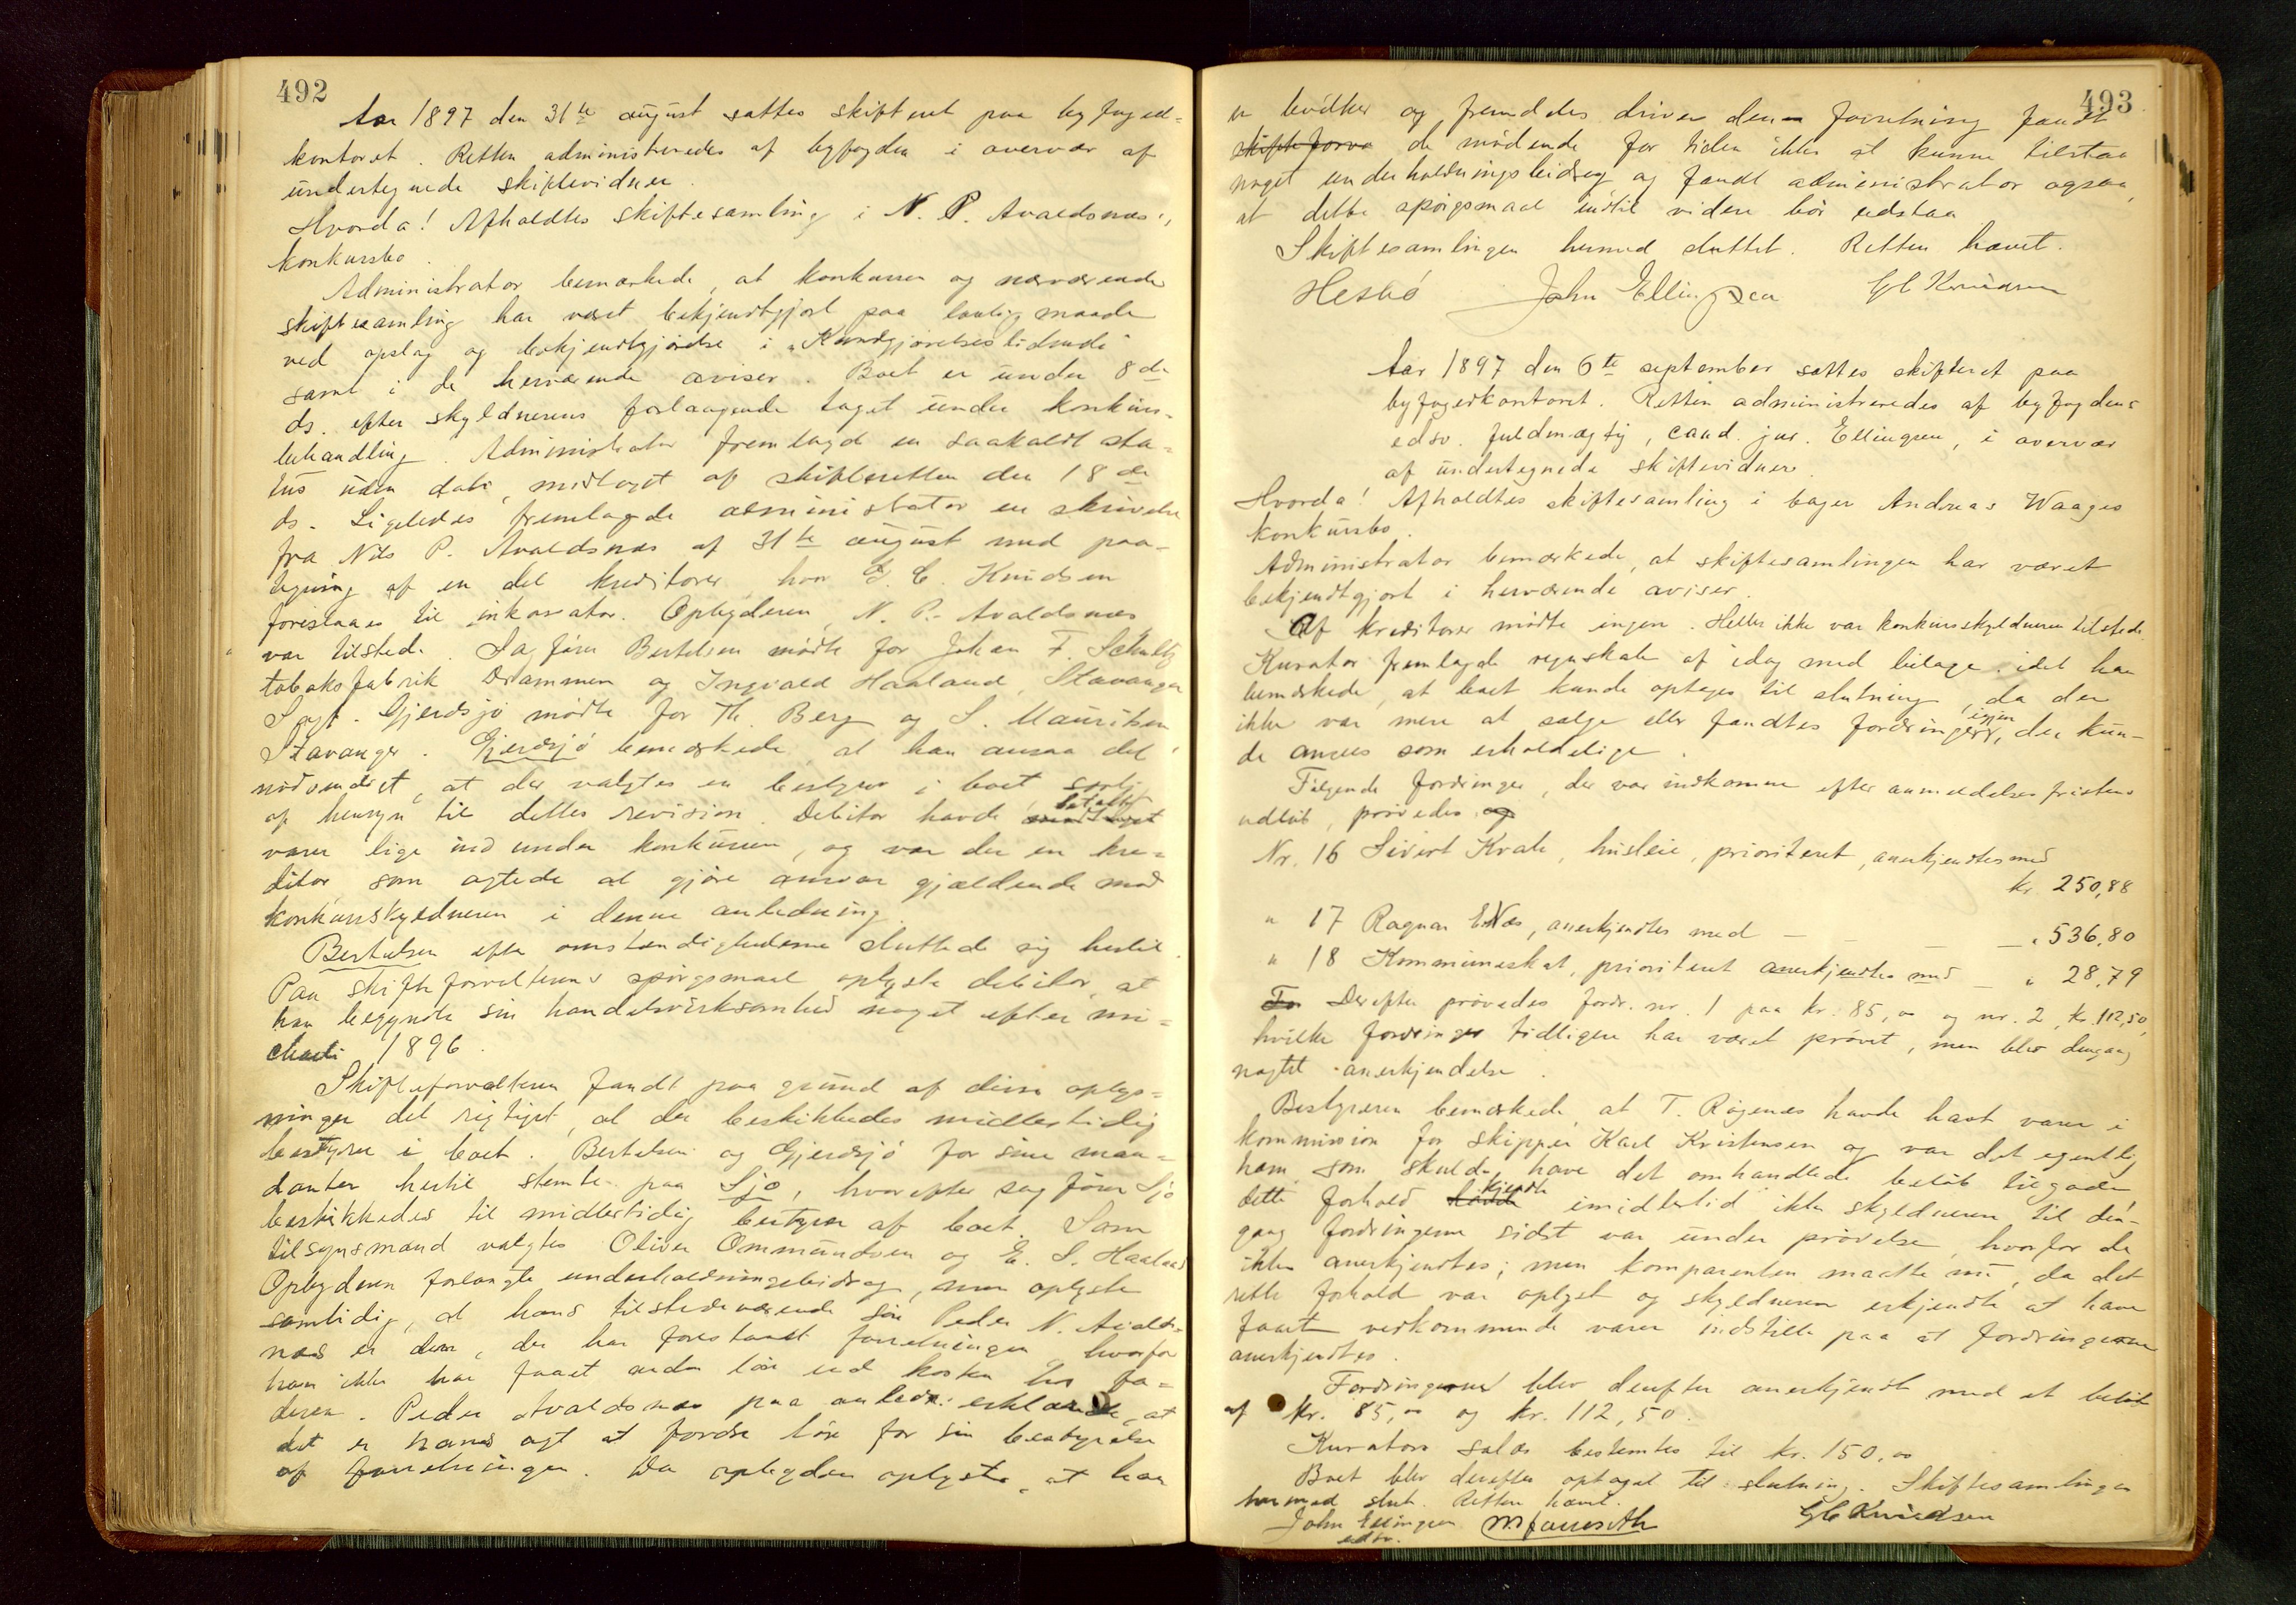 492
Aar 1897 den 31te august sattes skifteret paa byfoged-
kontoret. Retten administreredes af byfogden i overvær af
undertegnede skiftevidner.
Hvorda! Afholdtes skiftesamling i N. P. Avaldsnes',
konkursbo.
Administrator bemærkede, at konkursen og nærværende
skiftesamling har været bekjendtgjort paa lovlig maade
ved opslag og bekjendtgjørelse i "Kundgjørelsestidende"
samt i de herværende aviser. Boet er under 8de
ds. efter skyldnerens forlangende taget under konkurs-
behandling. Administrator fremlagde en saakaldt sta-
tus uden dato, modtaget af skifteretten den 18de
ds. Ligeledes fremlagde administrator en skrivelse
fra Nils P. Avaldsnes af 31te august med paa-
tegning af en del kreditorer, hvor G. C. Knudsen
foreslaaes til inkasator. Opbyderen, N. P. Avaldsnes
var tilstede. Sagfører Bertelsen mødte for Johan F. Schultz
tobaksfabrik Drammen og Ingvald Haaland, Stavanger
Sagf. Gjerdsjø mødte for Th. Berg og S. Mauritsen,
Stavanger. Gjerdsjø bemærkede, at han ansaa det
nødvendigt, at der valgtes en bestyrer i boet
af hensyn til dettes revision. Debitor havde betalt
varer lige ind under konkursen, og var der en kre-
ditor, som agtede at gjøre ansvar gjældende mod
konkursskyldneren i denne anledning.
Bertelsen efter omstændighederne sluttede sig hertil.
Paa skifteforvalterens spørgsmaal oplyste debitor, at
han begyndte sin handelsvirksomhed noget efter mi-
chaeli 1896.
Skifteforvalteren fandt paa grund af disse oplys-
ninger det rigtigst, at der beskikkedes midlertidig
bestyrer i boet. Bertelsen og Gjerdsjø for sine man-
danter hertil stemte paa Sjø, hvorefter sagfører Sjø
beskikkedes til midlertidig bestyrer af boet. Som
tilsynsmænd valgtes Oliver Ommundsen og E. S. Haaland
Opbyderen forlangte underholdningsbidrag, men oplyste
samtidig, at hans tilstedeværende søn Peder N. Avalds-
nes er den, der har forestaaet forretningen, hvorfor
han ikke har faaet anden løn end kosten hos fa-
deren. Peder Avaldsnes paa anledn. erklærede, at
det er hans agt at fordre løn for sin bestyrelse
af forretningen. Da opbyderen oplyste, at han
493
er bødker og fremdeles driver denne forretning fandt
skifteforva de mødende for tiden ikke at kunne tilstaa
noget underholdningsbidrag og fandt administrator ogsaa,
at dette spørgsmaal indtil videre bør udstaa.
Skiftesamlingen hermed sluttet. Retten hævet.
Hesbø John Ellingsen G C Knudsen
Aar 1897 den 6te september sattes skifteret paa
byfogedkontoret. Retten administreredes af byfogdens
edsv. fuldmægtig, cand. jur. Ellingsen, i overvær
af undertegnede skiftevidner.
Hvorda! Afholdtes skiftesamling i bager Andreas Waages
konkursbo.
Administrator bemærkede, at skiftesamlingen har været
bekjendtgjort i herværende aviser.
Af kreditorer mødte ingen. Heller ikke var konkursskyldneren tilstede.
Kurator fremlagde regnskab af idag med bilage, idet han
bemærkede, at boet kunde optages til slutning, da der
ikke var mere at sælge eller fandtes fordringer igjen, der kun-
de ansees som erholdelige.
Følgende fordringer, der var indkomne efter anmeldelsesfristens
udløb, prøvedes og
Nr. 16 Sivert Krak, husleie, prioriteret, anerkjendtes med
kr. 250,88
" 17 Ragnar E Næs, anerkjendtes med — — — " 536,80
" 18 Kommuneskat, prioriteret anerkjendtes med — " 28,79
For Derefter prøvedes fordr. nr. 1 paa kr. 85,00 og nr. 2, kr. 112,50,
hvilke fordringer tidligere har været prøvet, men blev dengang
nægtet anerkjendelse.
Bestyreren bemærkede, at T. Røgenes havde havt varer i
kommission for skipper Karl Kristensen og var det egentlig
ham, som skulde have det omhandlede beløb tilgode,
dette forhold kjendte imidlertid ikke skyldneren til den-
gang fordringerne sidst var under prøvelse, hvorfor de
ikke anerkjendtes; men komparenten maatte nu, da det
rette forhold var oplyst og skyldneren erkjendte at have
faaet vedkommende varer indstille paa at fordringerne
anerkjendtes.
Fordringerne blev derefter anerkjendt med et beløb
af kr. 85,00 og kr. 112,50.
Kurators salær bestemtes til kr. 150,00
Boet blev derefter optaget til slutning. Skiftesamlingen
hermed slut. Retten hævet.
John Ellingsen G C Knudsen
edsv.